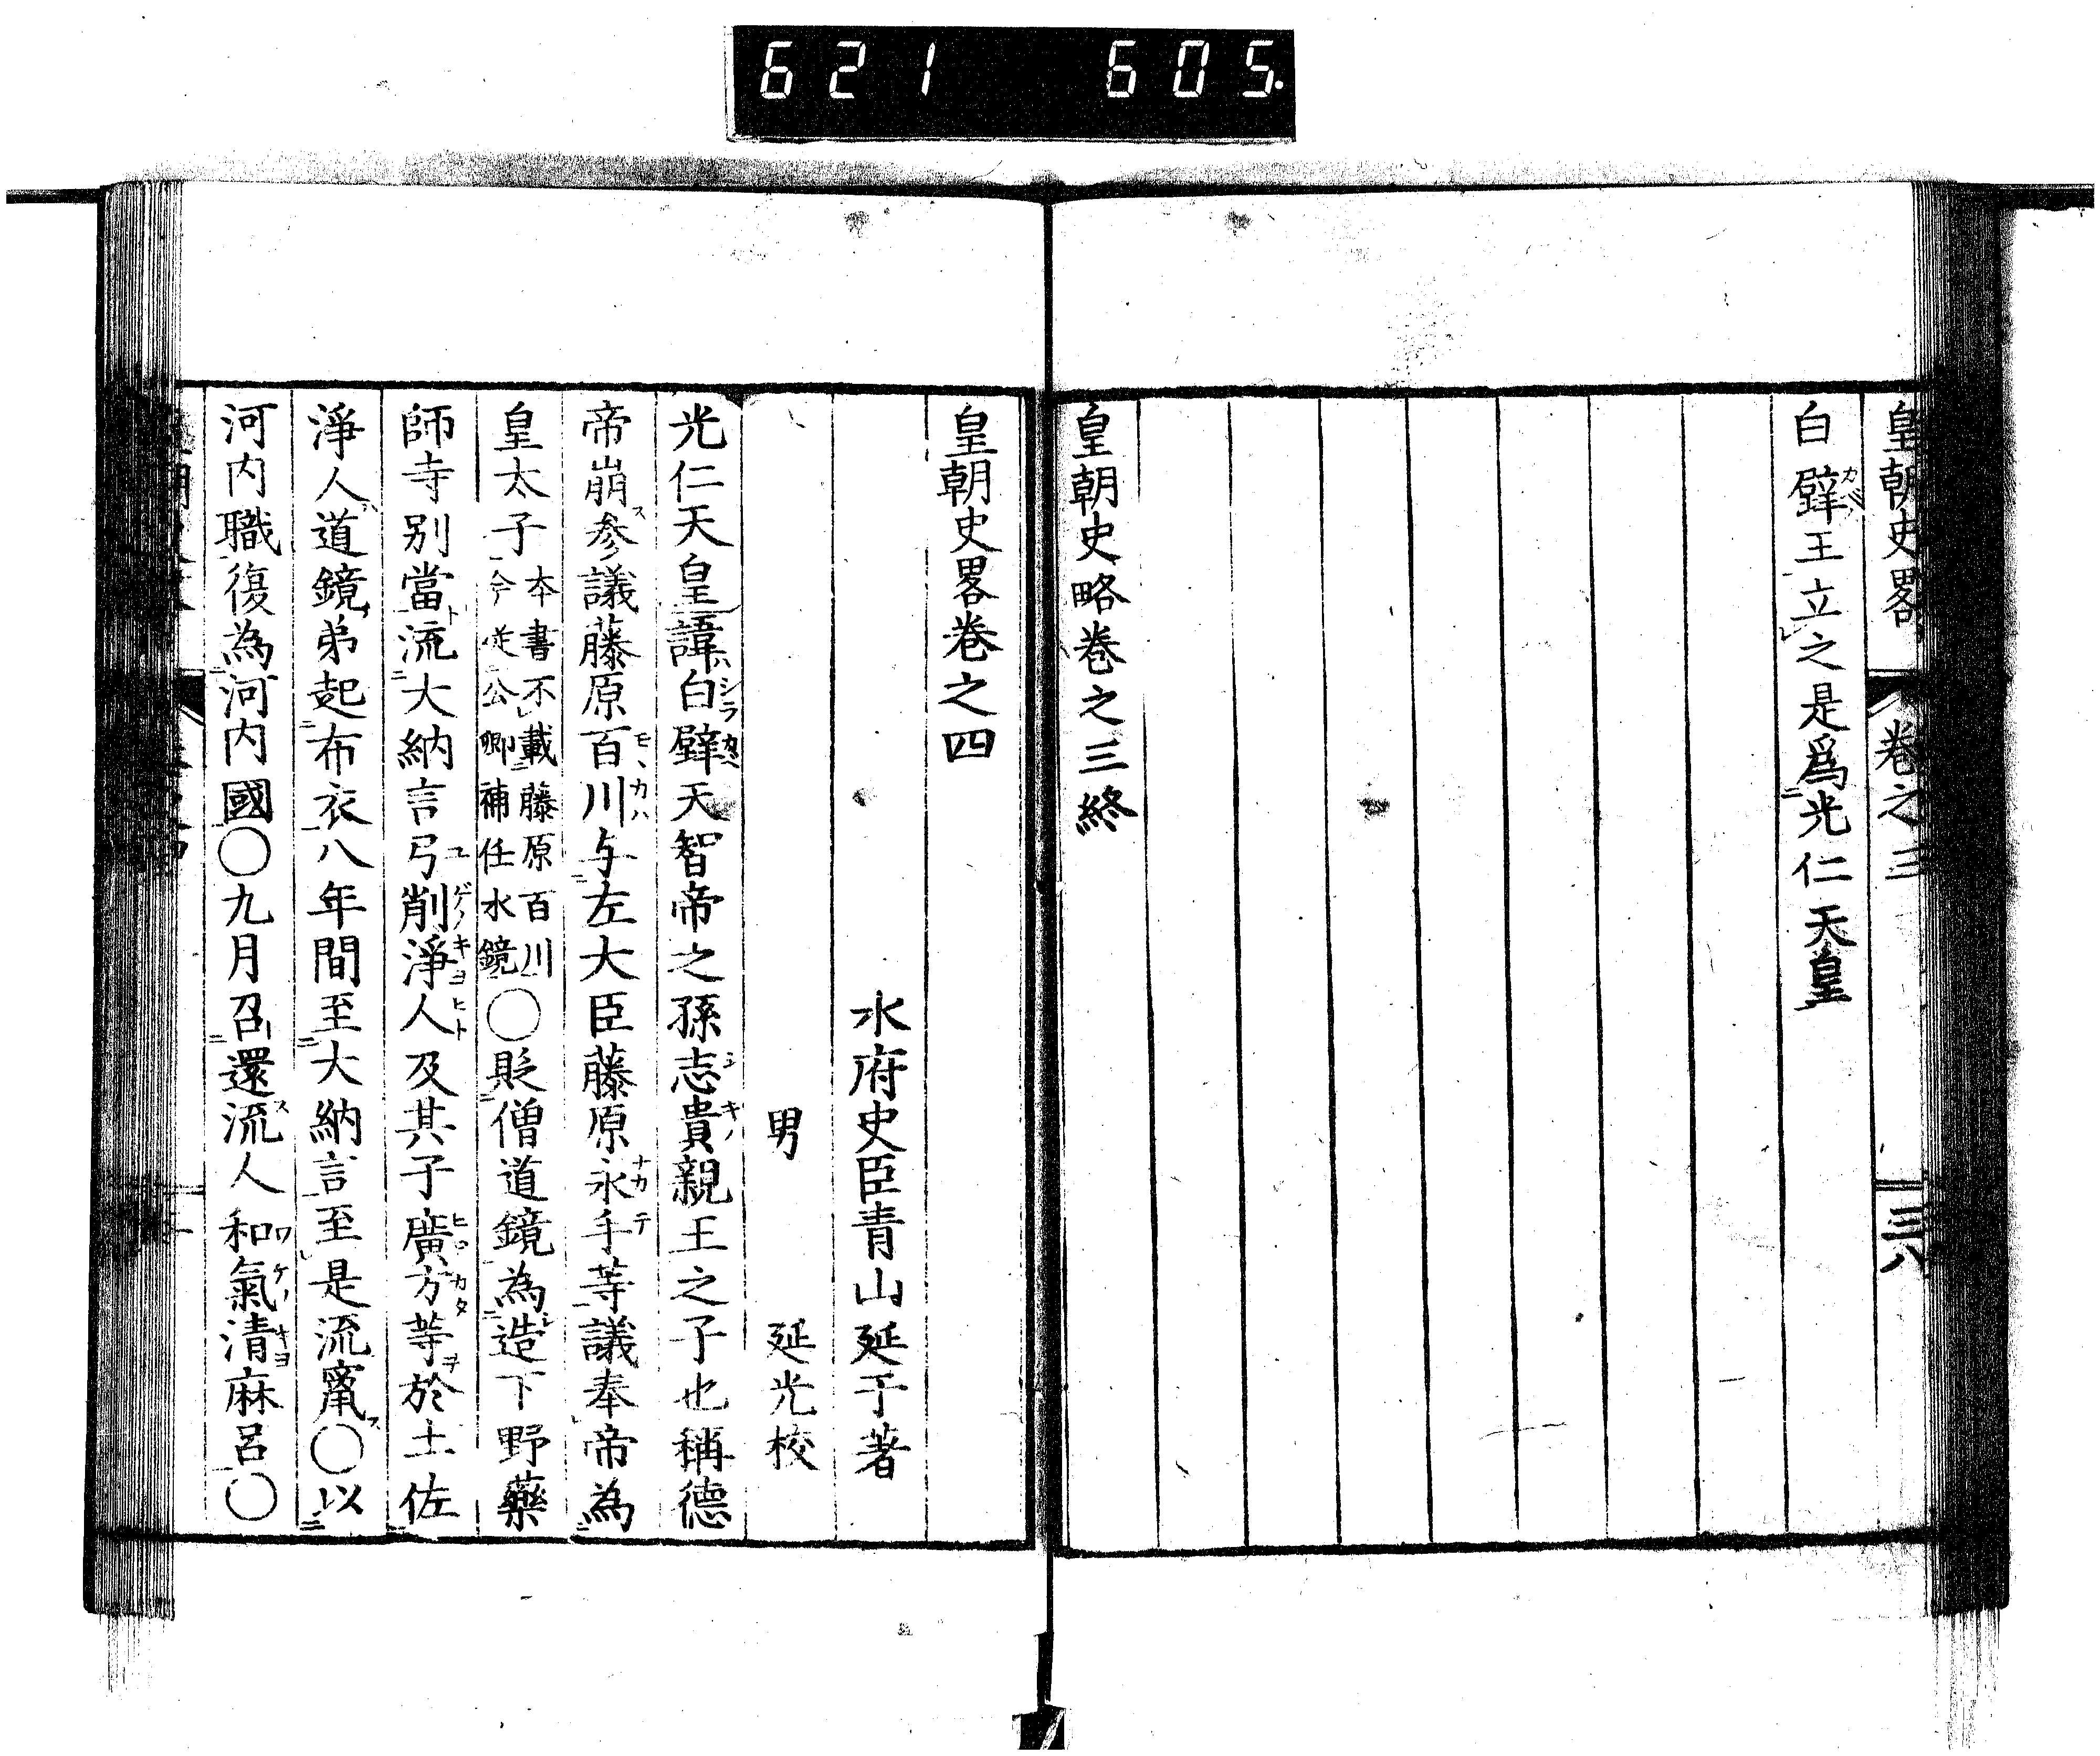 621 605.
皇朝史畧 卷之三 三八
白壁王立之是爲光仁天皇
皇朝史略巻之三終
皇朝史畧巻之四
水府史臣青山延于著
男 延光校
光仁天皇諱白壁天智帝之孫志貴親王之子也稱德
帝崩参議藤原百川与左大臣藤原永手等議奉帝為
皇太子本書不載藤原百川今從公卿補任水鏡〇貶僧道鏡為造下野藥
師寺別當流大納言弓削淨人及其子廣方等於土佐
淨人道鏡弟起布衣八年間至大納言至是流竄〇以
河内職復為河内國〇九月召還流人和氣清麻呂〇